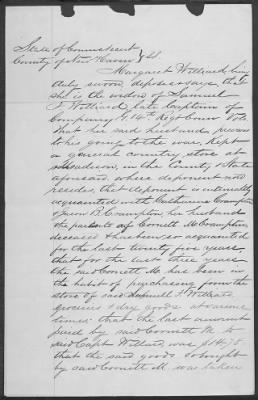 State of Connecticut
County of New Haven } SS.
Margaret Willard being
duly sworn deposes & says that
she is the widow of Samuel
F. Willard late Captain of
Company G 14th Regt Conn Vols
that her said husband previous
to his going to the war, kept
a general country store at
Madison, in the County & State
aforesaid, where deponent now
resides, that deponent is intimately
acquainted with Catharine Crampton
& Jason B. Crampton, her husband
the parents of Cornett M. Crampton
deceased & has been so acquainted
for the last twenty five years
that for the last three years
the said Cornett M. has been in
the habit of purchasing from the
store of said Samuel F. Willard
groceries & dry goods at various
times: that the last amount
paid by said Cornett M. to
said Capt Willard was $14.75.
that the said goods so bought
by said Cornett M. was taken